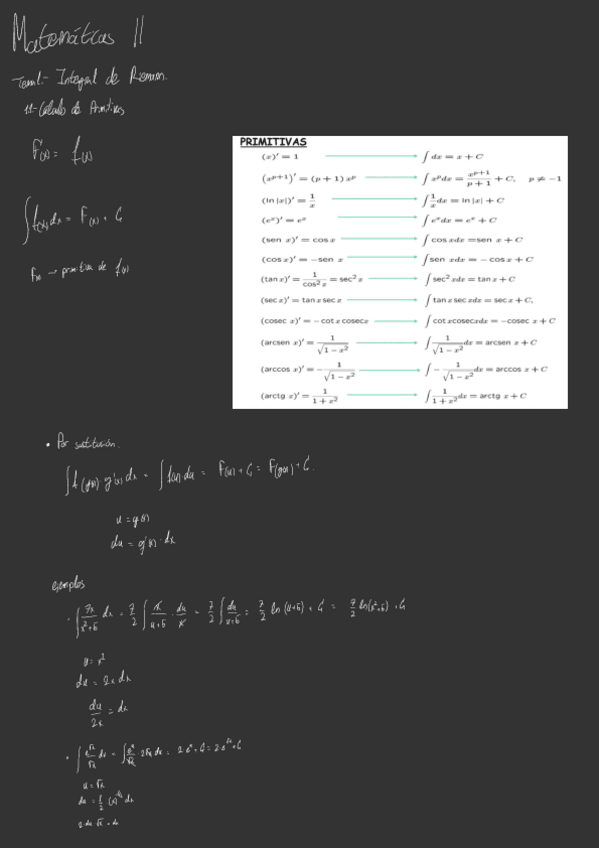 Matemáticas II
Tema 1.- Integral de Riemann.
1.1- Cálculo de Primitivas
F(x) = f(x)
∫f(x)dx = F(x) + C
F(x) → primitiva de f(x)
PRIMITIVAS
(x)' = 1 → ∫ dx = x + C
(x^{p+1})' = (p + 1) x^p → ∫ x^p dx = x^{p+1}/(p + 1) + C, p ≠ −1
(ln |x|)' = 1/x → ∫ 1/x dx = ln |x| + C
(e^x)' = e^x → ∫ e^x dx = e^x + C
(sen x)' = cos x → ∫ cos xdx = sen x + C
(cos x)' = −sen x → ∫ sen xdx = − cos x + C
(tan x)' = 1/cos² x = sec² x → ∫ sec² xdx = tan x + C
(sec x)' = tan x sec x → ∫ tan x sec xdx = sec x + C,
(cosec x)' = − cot x cosecx → ∫ cot xcosecxdx = −cosec x + C
(arcsen x)' = 1/√(1 − x²) → ∫ 1/√(1 − x²) dx = arcsen x + C
(arccos x)' = − 1/√(1 − x²) → ∫ − 1/√(1 − x²) dx = arccos x + C
(arctg x)' = 1/(1 + x²) → ∫ 1/(1 + x²) dx = arctg x + C
• Por sustitución.
∫f(g(x))·g'(x) dx = ∫f(u) du = F(u) + C = F(g(x)) + C.
u = g(x)
du = g'(x)·dx
ejemplos
· ∫ 7x/(x²+5) dx = 7/2 ∫ x/(u+5) · du/x = 7/2 ∫ du/(u+5) = 7/2 ln (u+5) + C = 7/2 ln(x²+5) + C
u = x²
du = 2x dx
du/2x = dx
· ∫ e^√x/√x dx = ∫ e^u/√x · 2√x du = 2·e^u + C = 2·e^√x + C
u = √x
du = 1/2 (x)^{-1/2} dx
2 du √x = dx